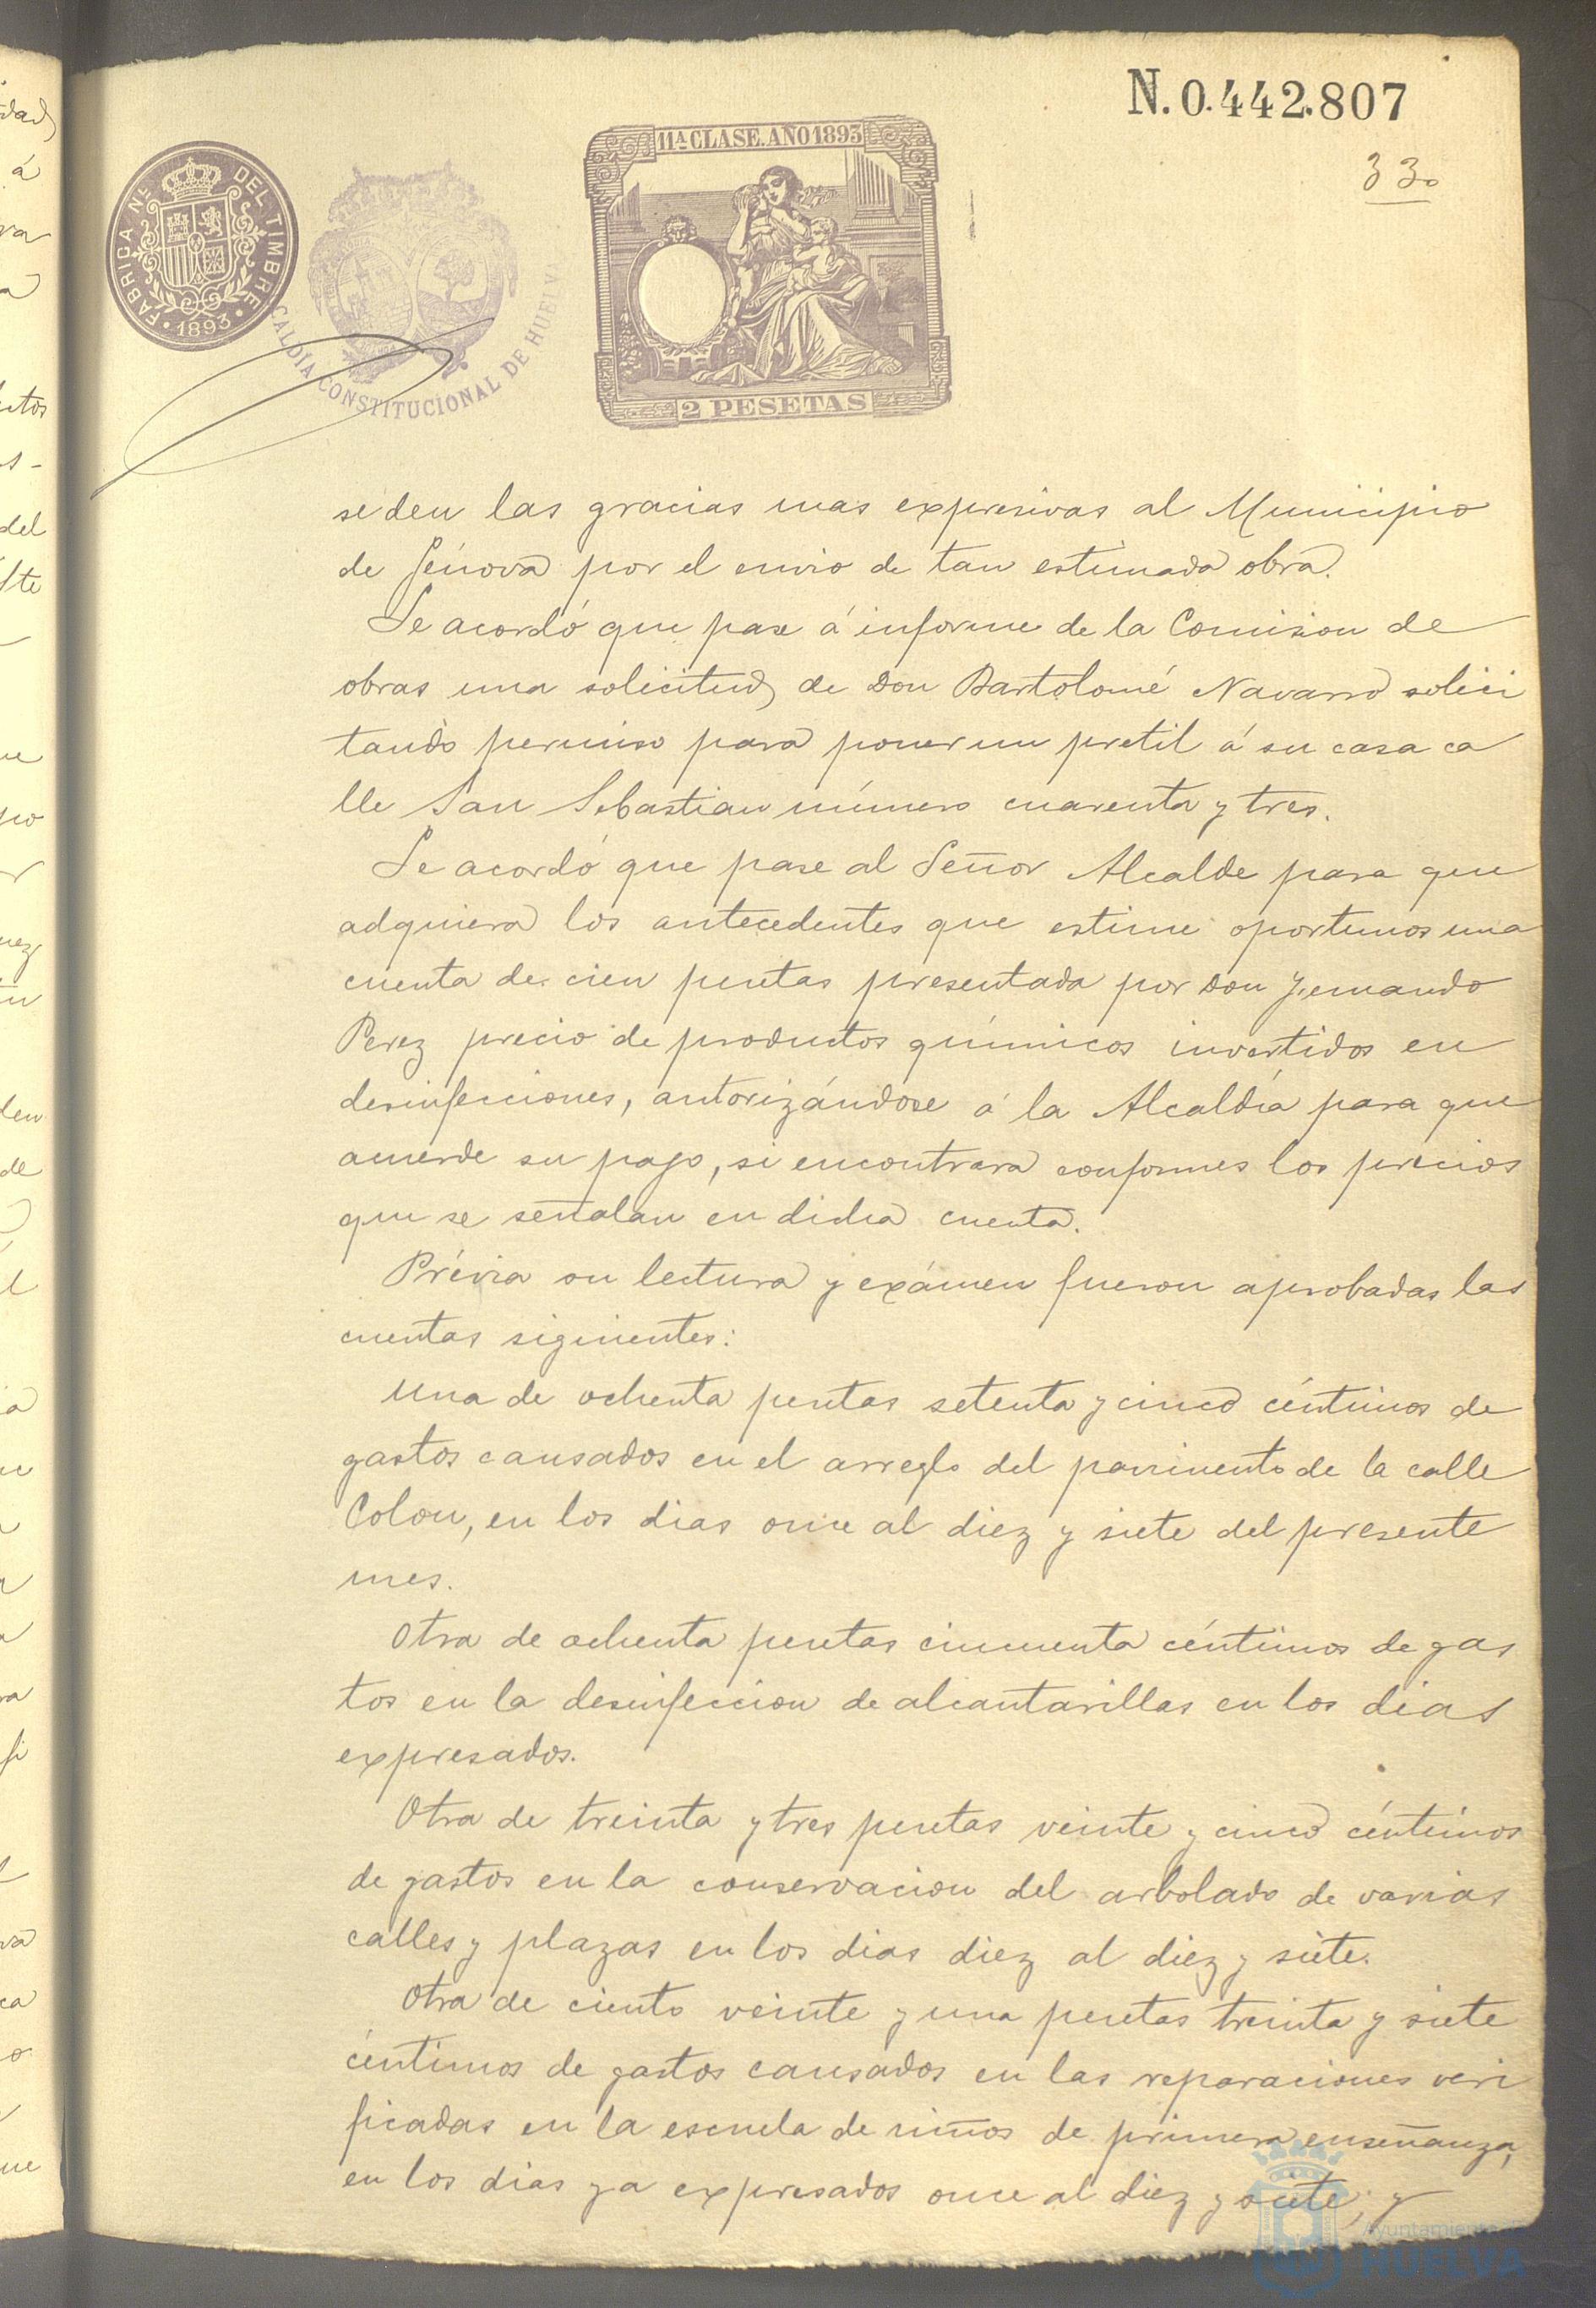 N. 0.442.807
33
11ª CLASE. AÑO 1893
FABRICA NL. DEL TIMBRE
1893
ALCALDÍA CONSTITUCIONAL DE HUELV
2 PESETAS
se den las gracias mas expresivas al Municipio
de Génova por el envio de tan estimada obra.
Se acordó que pase á informe de la Comision de
obras una solicitud de Don Bartolomé Navarro solici
tando permiso para poner un pretil á su casa ca
lle San Sebastian número cuarenta y tres.
Se acordó que pase al Señor Alcalde para que
adquiera los antecedentes que estime oportunos una
cuenta de cien pesetas presentada por Don Fernando
Perez precio de productos químicos invertidos en
desinfecciones, autorizándose á la Alcaldía para que
acuerde su pago, si encontrara conformes los precios
que se señalan en dicha cuenta.
Prévia su lectura y exámen fueron aprobadas las
cuentas siguientes:
Una de ochenta pesetas setenta y cinco céntimos de
gastos causados en el arreglo del pavimento de la calle
Colon, en los dias once al diez y siete del presente
mes.
Otra de ochenta pesetas cincuenta céntimos de gas
tos en la desinfeccion de alcantarillas en los dias
expresados.
Otra de treinta y tres pesetas veinte y cinco céntimos
de gastos en la conservacion del arbolado de varias
calles y plazas en los dias diez al diez y siete.
Otra de ciento veinte y una pesetas treinta y siete
céntimos de gastos causados en las reparaciones veri
ficadas en la escuela de niños de primera enseñanza,
en los dias ya expresados once al diez y siete; y
Ayuntamiento
HUELVA